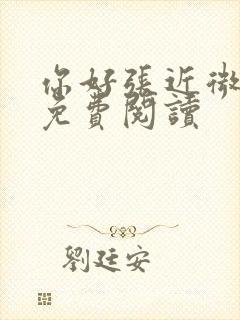 你好張近微
免費閱讀
劉廷安